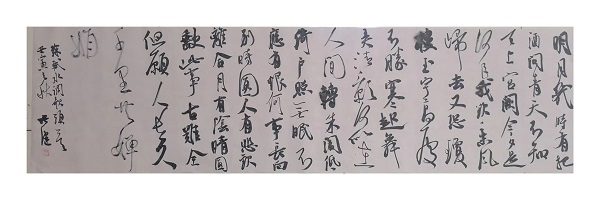 明月几时有把
酒问青天不知
天上宫阙今夕是
何年我欲乘风
归去又恐琼
楼玉宇高处
不胜寒起舞
弄清影何似在
人间转朱阁低
绮户照无眠不
应有恨何事长向
别时圆人有悲欢
离合月有阴晴圆
缺此事古难全
但愿人长久
千里共婵
娟